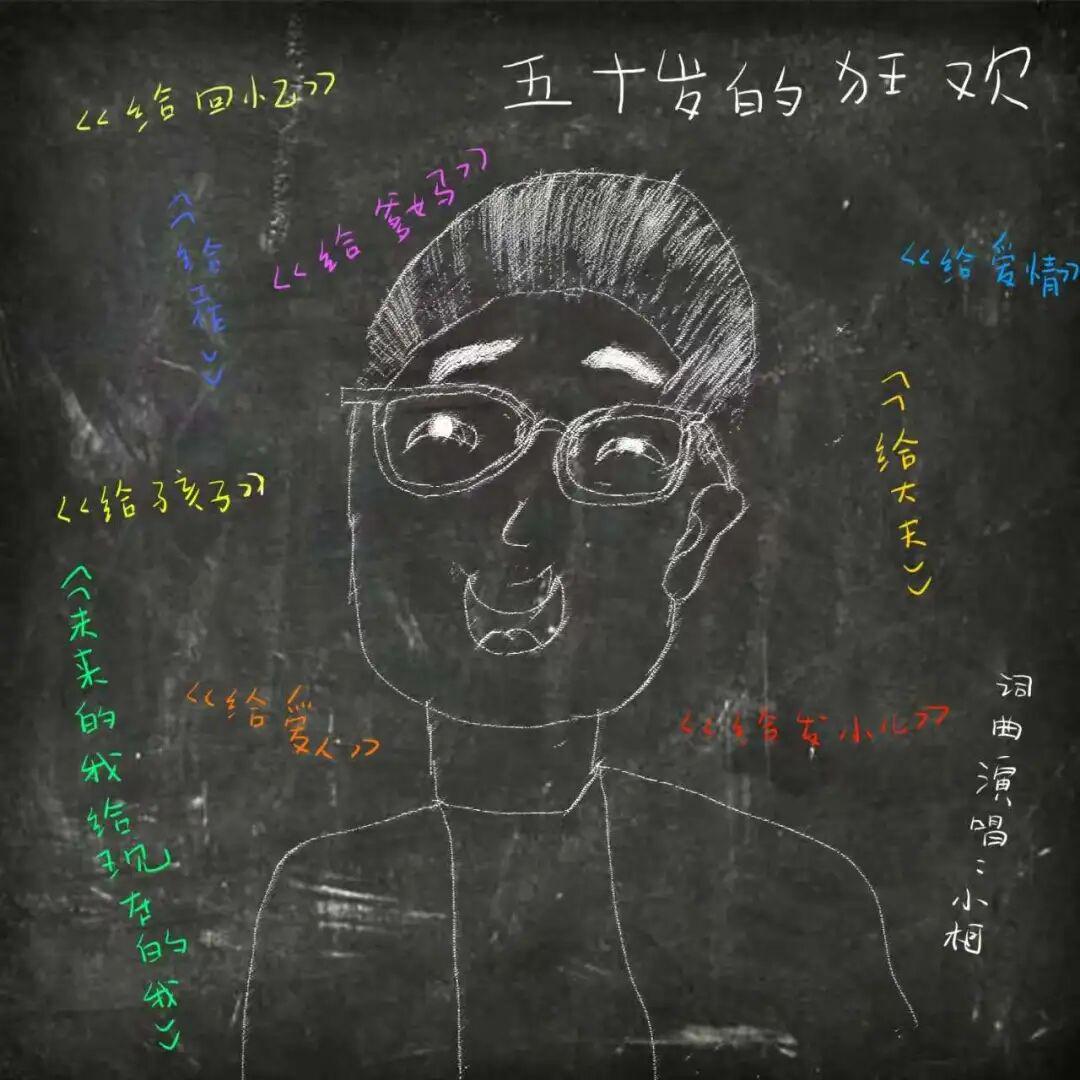 五十岁的狂欢
<<给回忆>>
<<给爹妈>>
<<给工作>>
<<给爱情>>
<<给大夫>>
<<给孩子>>
<<未来的我给现在的我>>
<<给爱人>>
<<给发小儿>>
词曲演唱：小柯